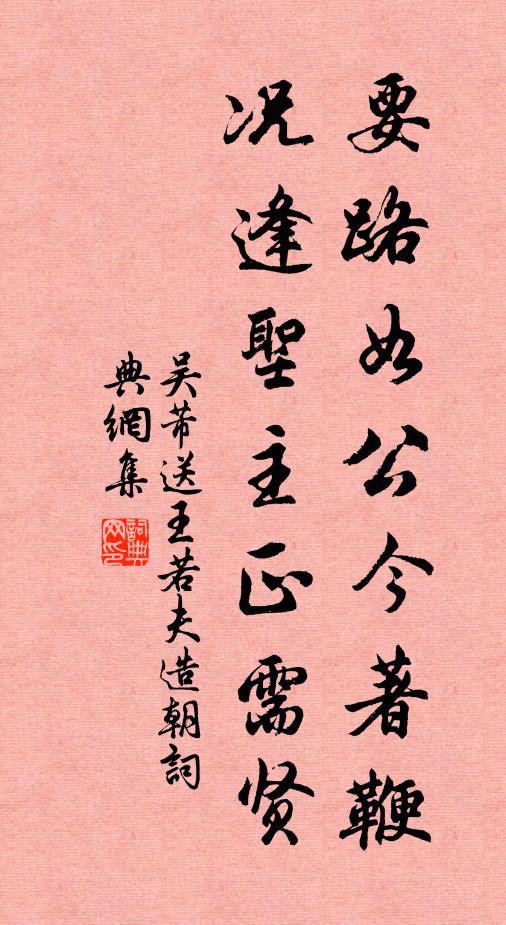 要路如公今著鞭
况逢聖主正需贤
吴芾送王若夫造朝詞
典網集
詞典網印